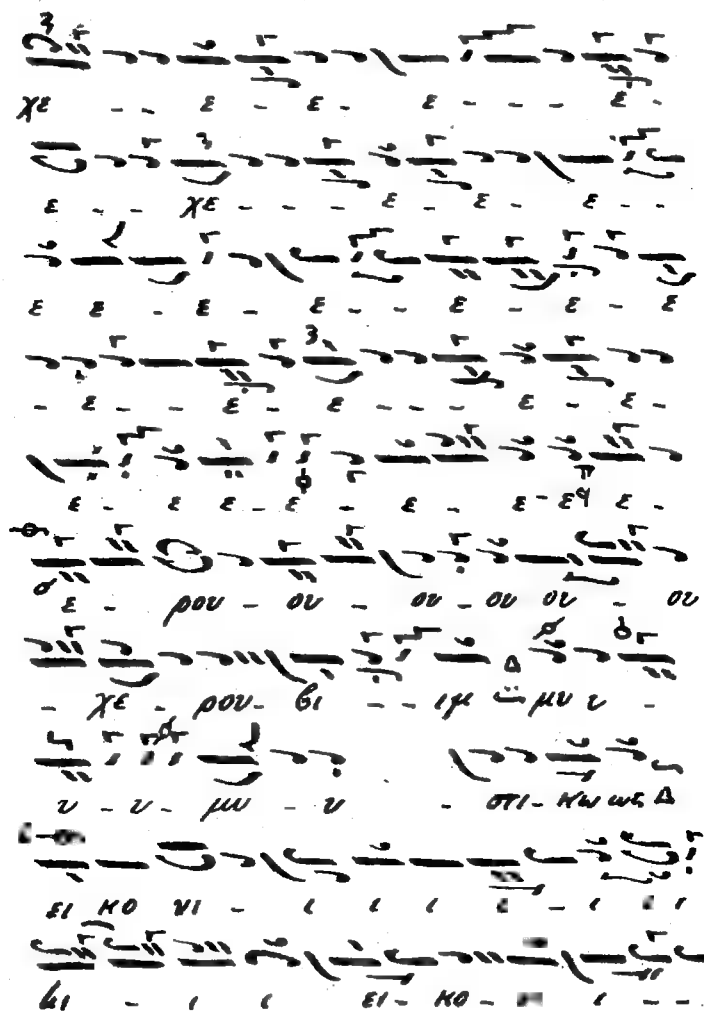 χε - - ε - ε - ε - - - ε -
ε - - χε - - - ε - ε - ε - -
ε ε - ε - ε - - ε - ε - ε
- ε - - ε - ε - - - ε - ε -
ε - ε ε - ε - ε - ε - ε ε -
ε - ρου - ου - ου - ου ου - ου
- χε - ρου - βι - - ιμ μυ υ -
υ - υ - μυ - υ - οπι - κω ως Δ
ει κο νι - ι ι ι - ι ι
- ι ι ει - κο - ι - -